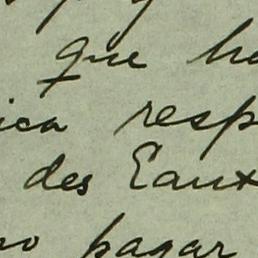 que ha
ica resp
des Eaux
no pagar